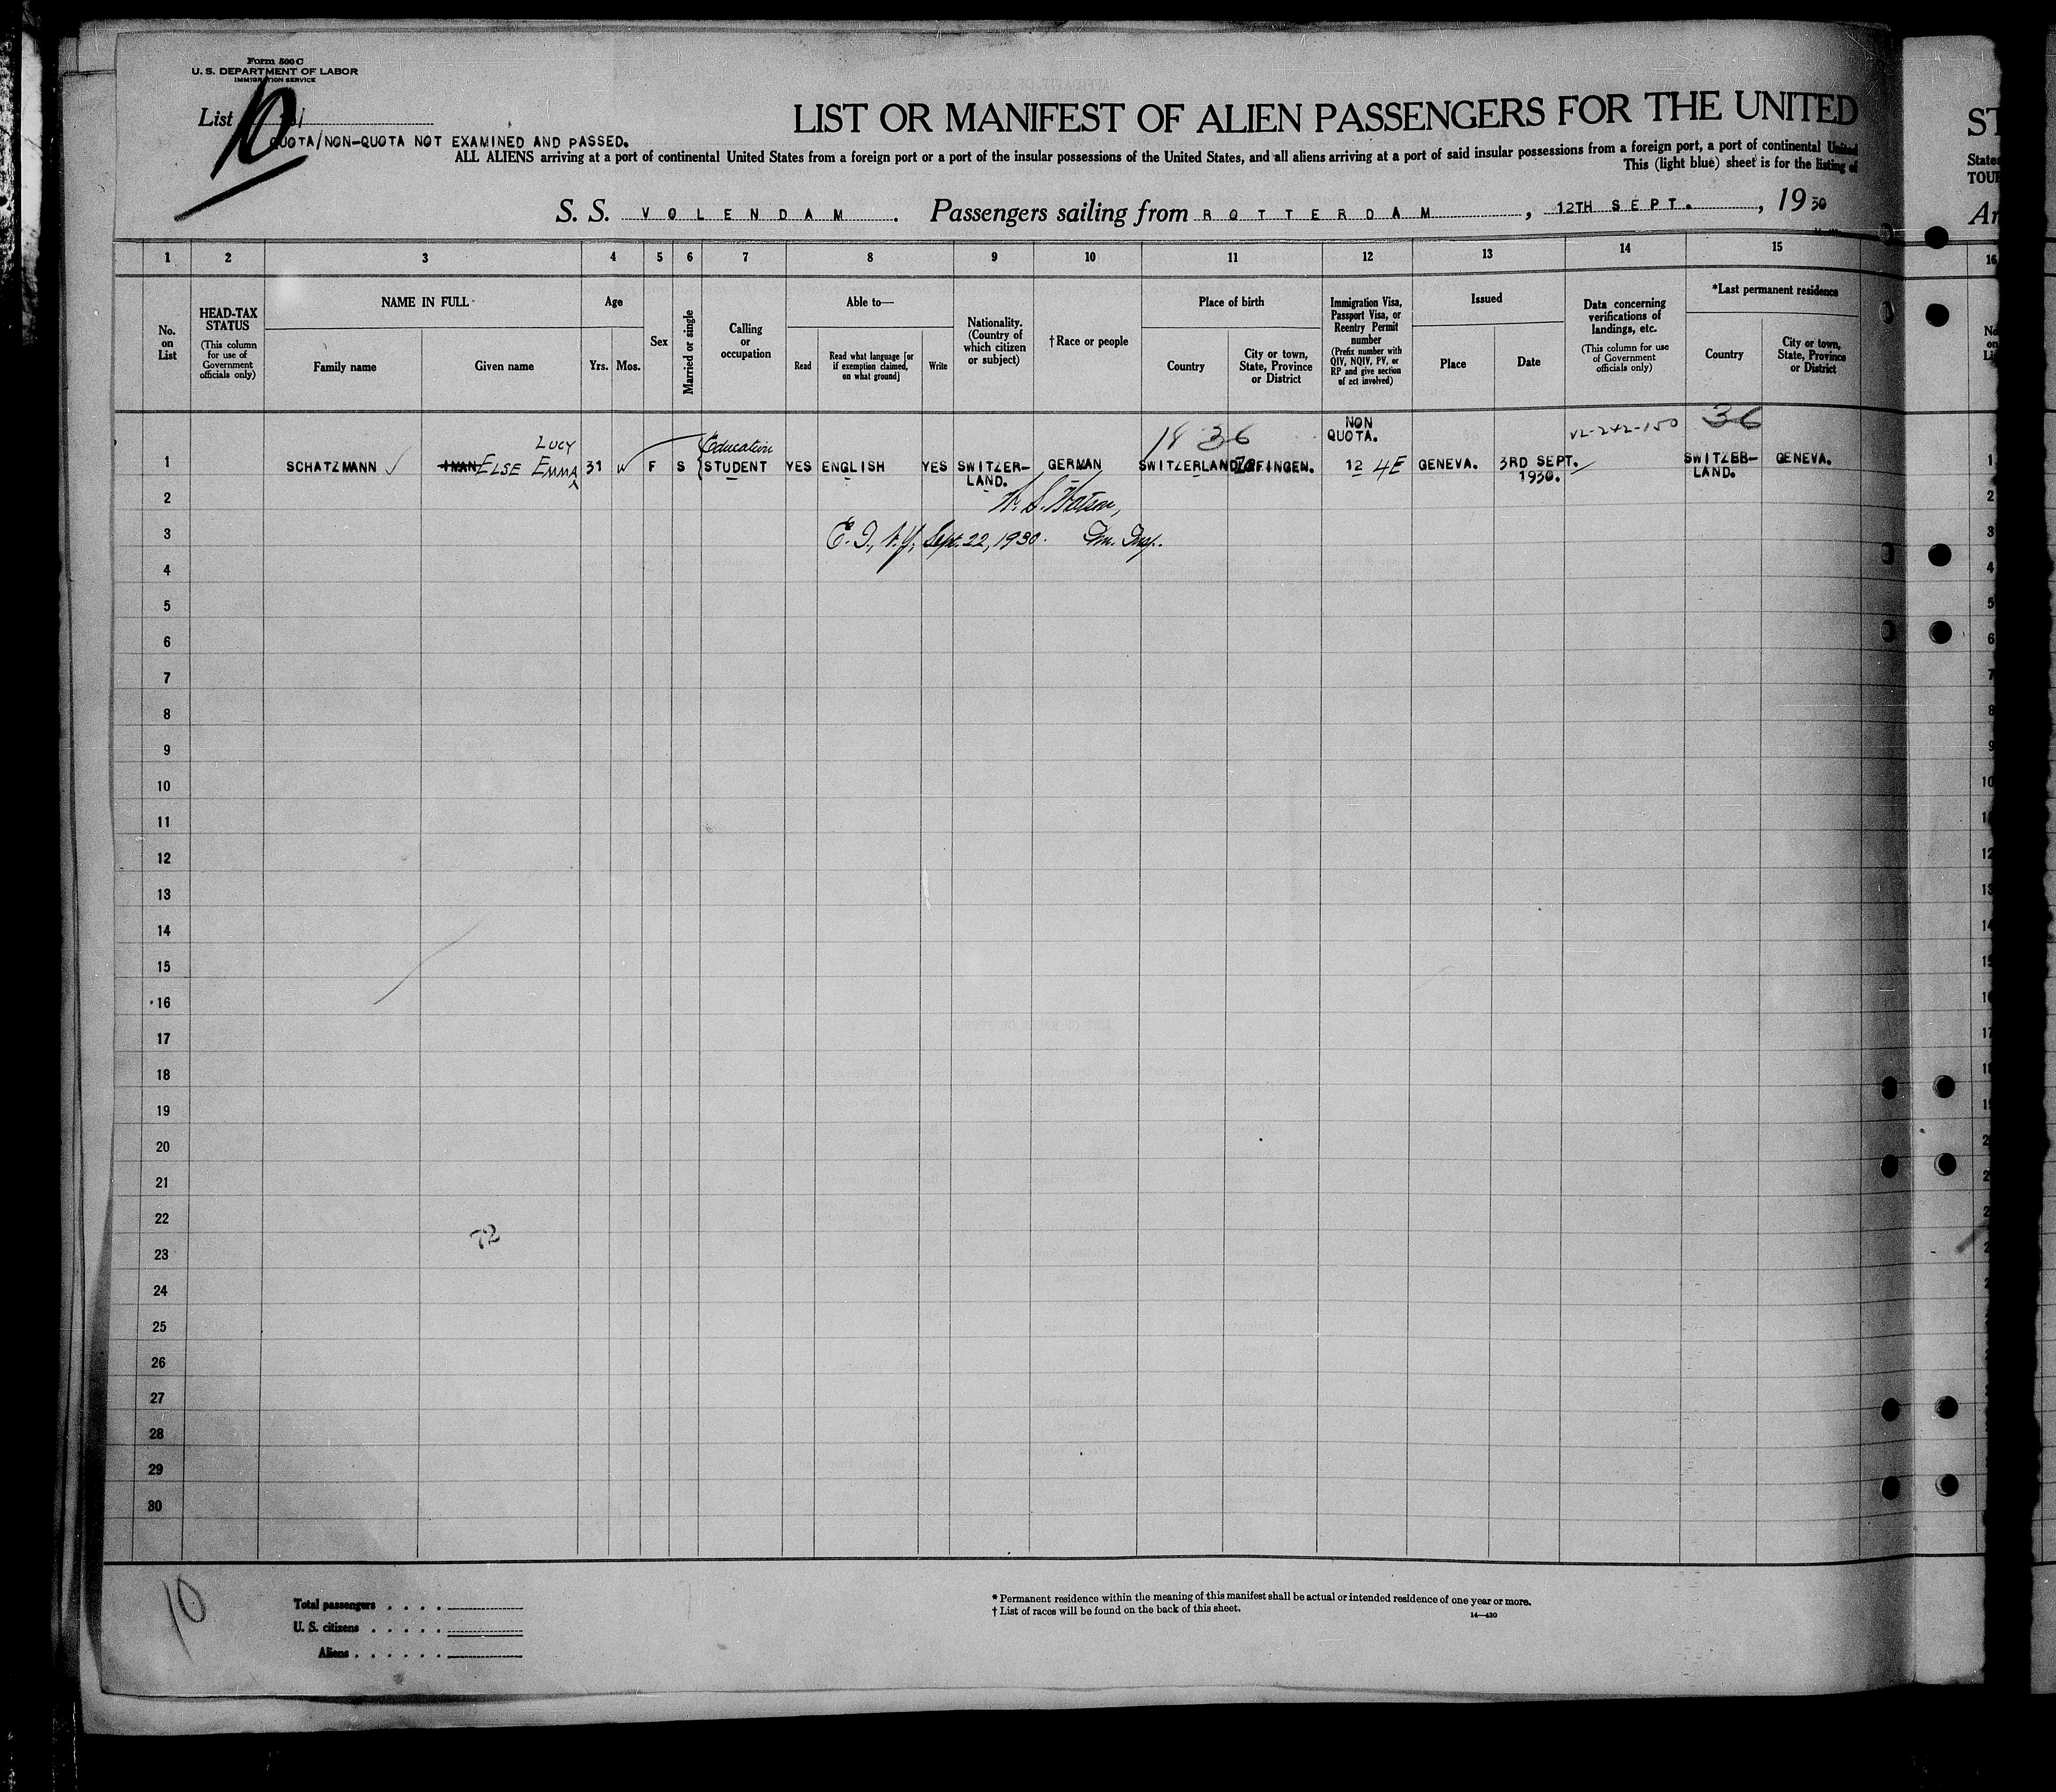 Form 500 C
U. S. DEPARTMENT OF LABOR
IMMIGRATION SERVICE
List 10
QUOTA/NON-QUOTA NOT EXAMINED AND PASSED.
LIST OR MANIFEST OF ALIEN PASSENGERS FOR THE UNITED
ALL ALIENS arriving at a port of continental United States from a foreign port or a port of the insular possessions of the United States, and all aliens arriving at a port of said insular possessions from a foreign port, a port of continental United
This (light blue) sheet is for the listing of
S. S. VOLENDAM. Passengers sailing from ROTTERDAM, 12TH SEPT., 1930
ST
States
TOUR
Ar
1 2 3 4 5 6 7 8 9 10 11 12 13 14 15 16
No. on List
HEAD-TAX STATUS
(This column for use of Government officials only)
NAME IN FULL
Family name
Given name
Age
Yrs.
Mos.
Sex
Married or single
Calling or occupation
Able to—
Read
Read what language [or if exemption claimed, on what ground]
Write
Nationality. (Country of which citizen or subject)
†Race or people
Place of birth
Country
City or town, State, Province or District
Immigration Visa, Passport Visa, or Reentry Permit number
(Prefix number with QIV, NQIV, PV, or RP and give section of act involved)
Issued
Place
Date
Data concerning verifications of landings, etc.
(This column for use of Government officials only)
*Last permanent residence
Country
City or town, State, Province or District
LUCY
Education
36
NON
QUOTA.
36
1 SCHATZMANN ELSE EMMA 31 F S STUDENT YES ENGLISH YES SWITZER- GERMAN SWITZERLAND ZOFINGEN. 12 4E GENEVA. 3RD SEPT. SWITZER- GENEVA. 1
LAND. 1930. LAND.
2 W. S. Watson, 2
3 E. I., N.Y., Sept. 22, 1930. Im. Insp. 3
4 4
5 5
6 6
7 7
8 8
9 9
10 10
11
12 12
13
14 14
15
16
17
18
19
20
21
22
72
23
24
25
26
27
28
29
30
10
Total passengers . . . .
U. S. citizens . . . . .
Aliens . . . . . .
* Permanent residence within the meaning of this manifest shall be actual or intended residence of one year or more.
† List of races will be found on the back of this sheet.
14—430